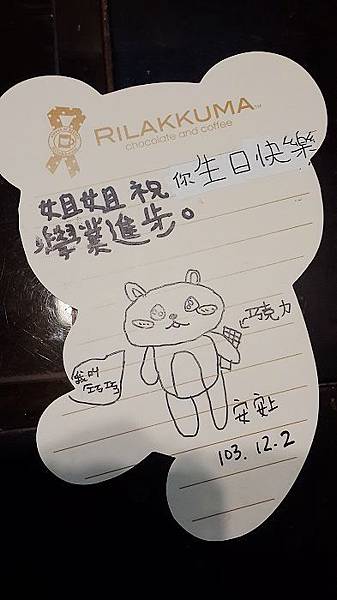 RILAKKUMA™
chocolate and coffee
姐姐祝你生日快樂
學業進步。
巧克力
我叫
巧巧
安安上
103.12.2